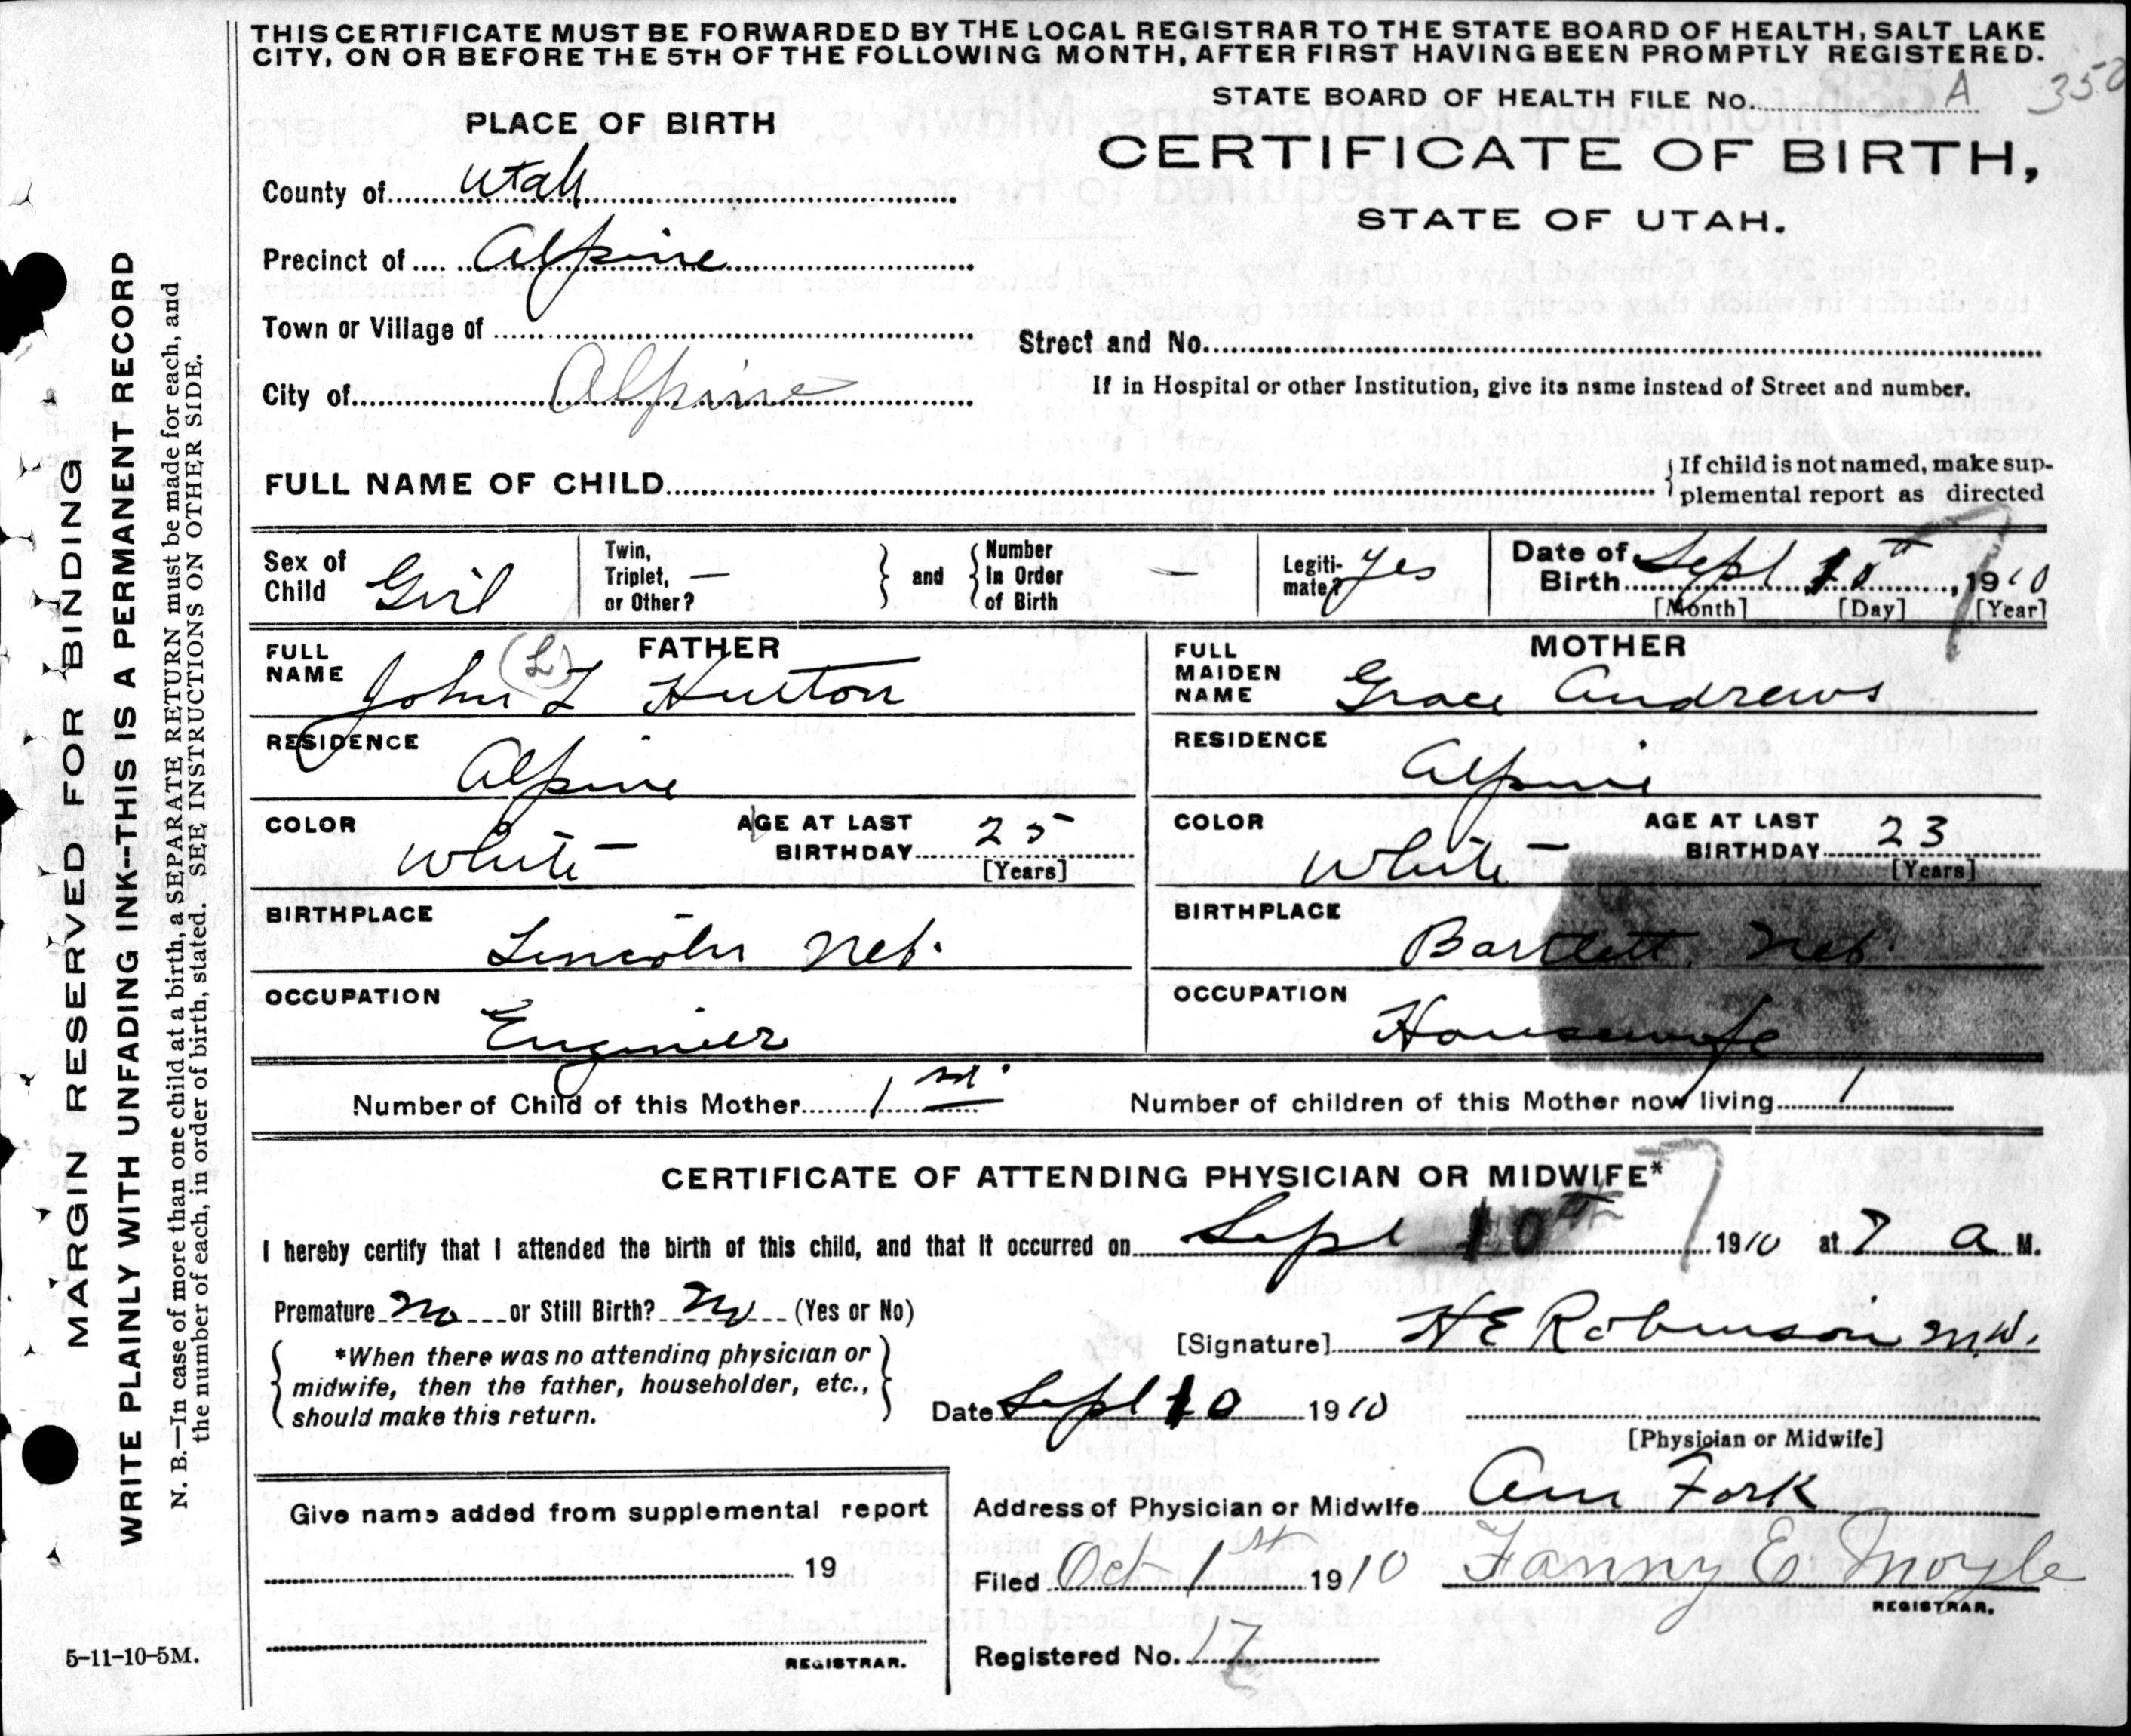 THIS CERTIFICATE MUST BE FORWARDED BY THE LOCAL REGISTRAR TO THE STATE BOARD OF HEALTH, SALT LAKE
CITY, ON OR BEFORE THE 5TH OF THE FOLLOWING MONTH, AFTER FIRST HAVING BEEN PROMPTLY REGISTERED.
STATE BOARD OF HEALTH FILE No. A 350
PLACE OF BIRTH
CERTIFICATE OF BIRTH,
STATE OF UTAH.
County of Utah
Precinct of Alpine
Town or Village of
Street and No.
City of Alpine
If in Hospital or other Institution, give its name instead of Street and number.
FULL NAME OF CHILD
If child is not named, make sup-
plemental report as directed
Sex of Child Girl
Twin, Triplet, or Other? —
and
Number In Order of Birth —
Legiti-mate? Yes
Date of Birth Sept 10th, 1910
[Month] [Day] [Year]
FATHER
FULL NAME John L (L) Hutton
RESIDENCE Alpine
COLOR White
AGE AT LAST BIRTHDAY 25 [Years]
BIRTHPLACE Lincoln Neb.
OCCUPATION Engineer
MOTHER
FULL MAIDEN NAME Grace Andrews
RESIDENCE Alpine
COLOR White
AGE AT LAST BIRTHDAY 23 [Years]
BIRTHPLACE Bartlett, Neb.
OCCUPATION Housewife
Number of Child of this Mother 1st.
Number of children of this Mother now living 1
CERTIFICATE OF ATTENDING PHYSICIAN OR MIDWIFE*
I hereby certify that I attended the birth of this child, and that it occurred on Sept 10th 1910 at 7 a M.
Premature No or Still Birth? No (Yes or No)
[Signature] H E Robinson M.W.
*When there was no attending physician or
midwife, then the father, householder, etc.,
should make this return.
Date Sept 10 1910
[Physician or Midwife]
Give name added from supplemental report
19
REGISTRAR.
Address of Physician or Midwife Am Fork
Filed Oct 1st 1910 Fanny E Moyle
REGISTRAR.
Registered No. 17
MARGIN RESERVED FOR BINDING
WRITE PLAINLY WITH UNFADING INK--THIS IS A PERMANENT RECORD
N. B.—In case of more than one child at a birth, a SEPARATE RETURN must be made for each, and
the number of each, in order of birth, stated. SEE INSTRUCTIONS ON OTHER SIDE.
5-11-10-5M.